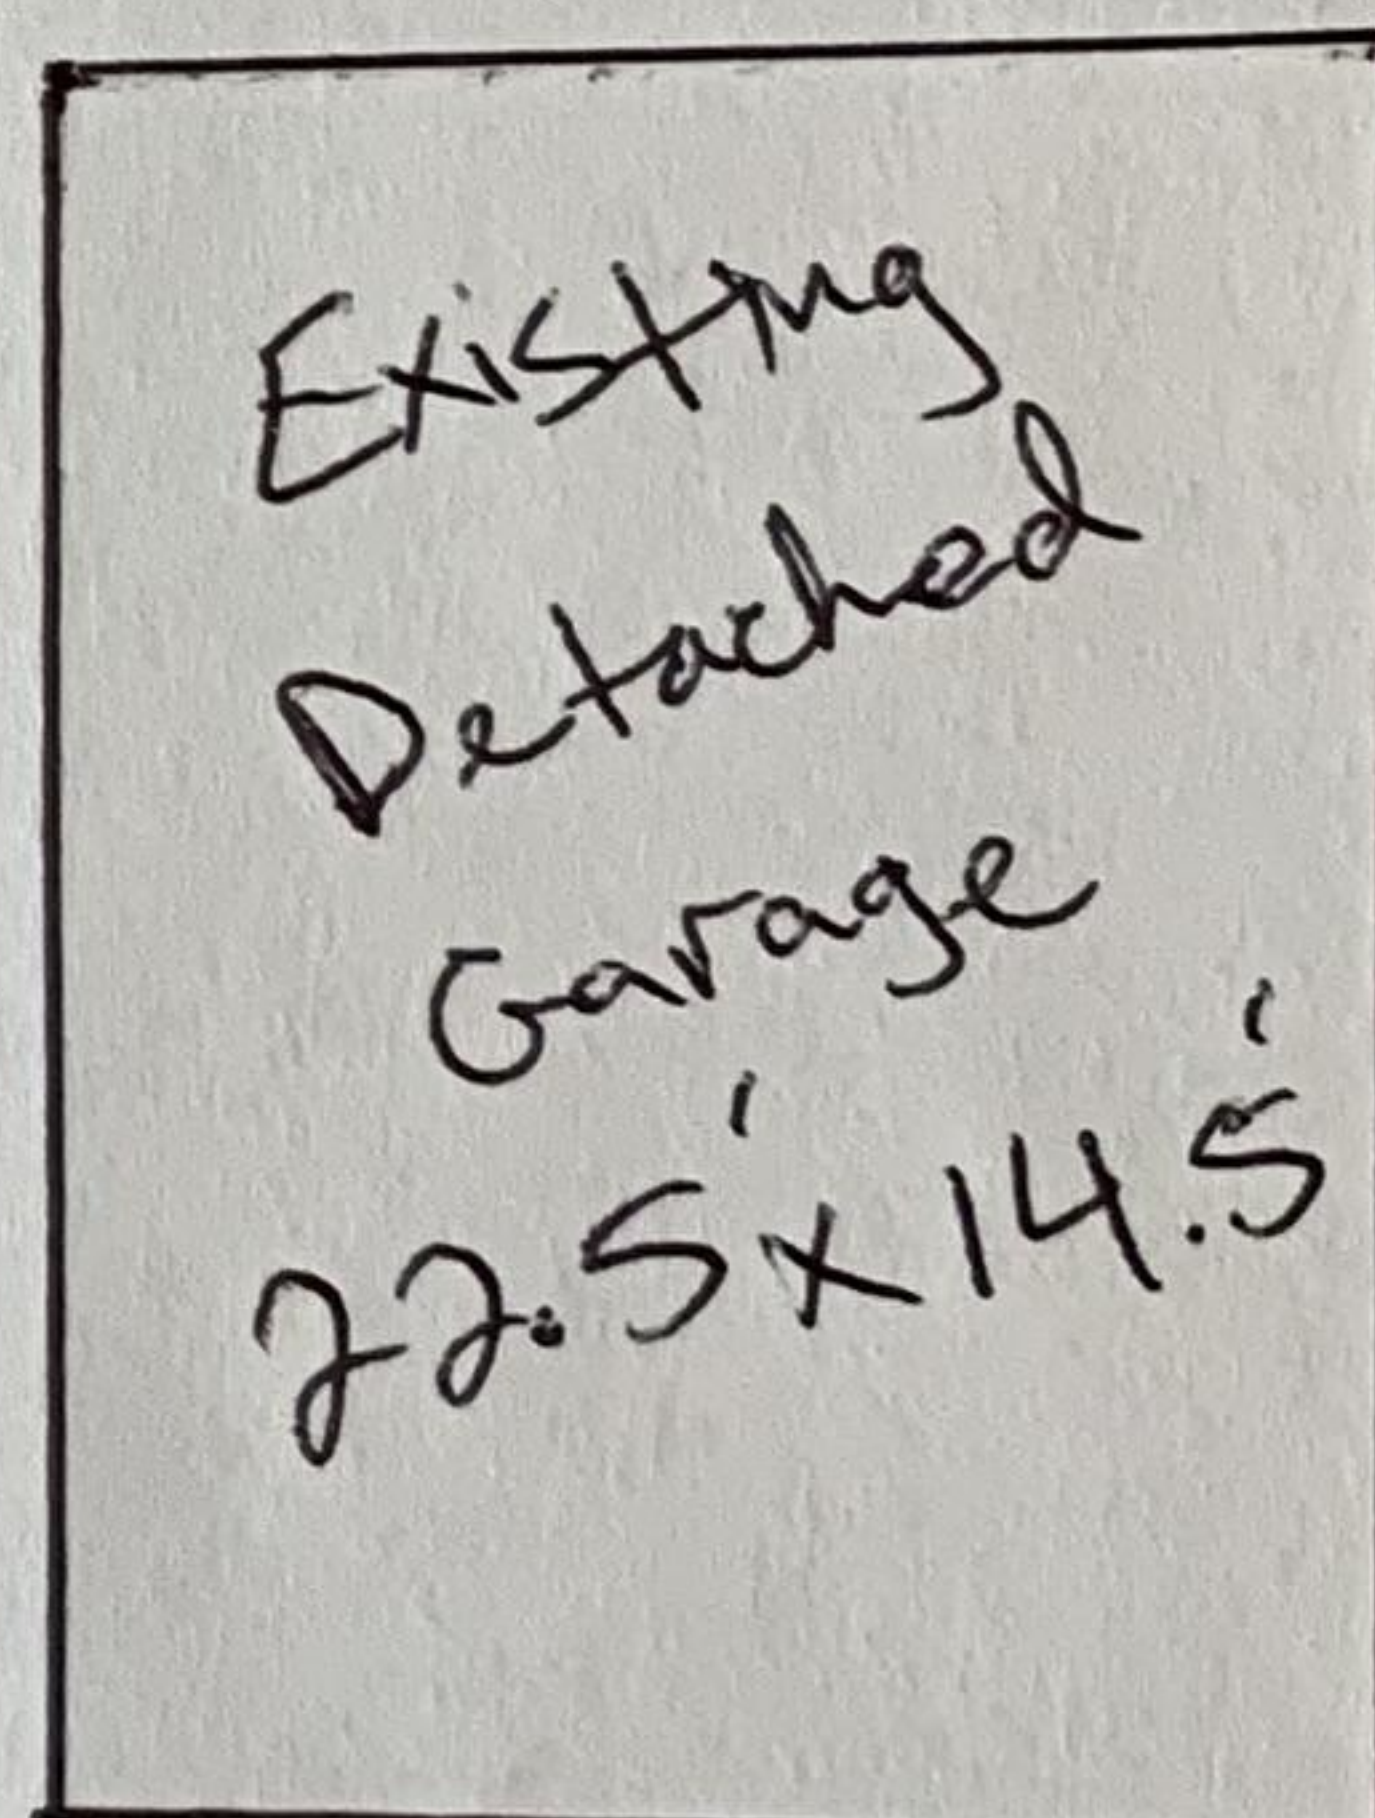 Existing
Detached
Garage
22.5' x 14.5'